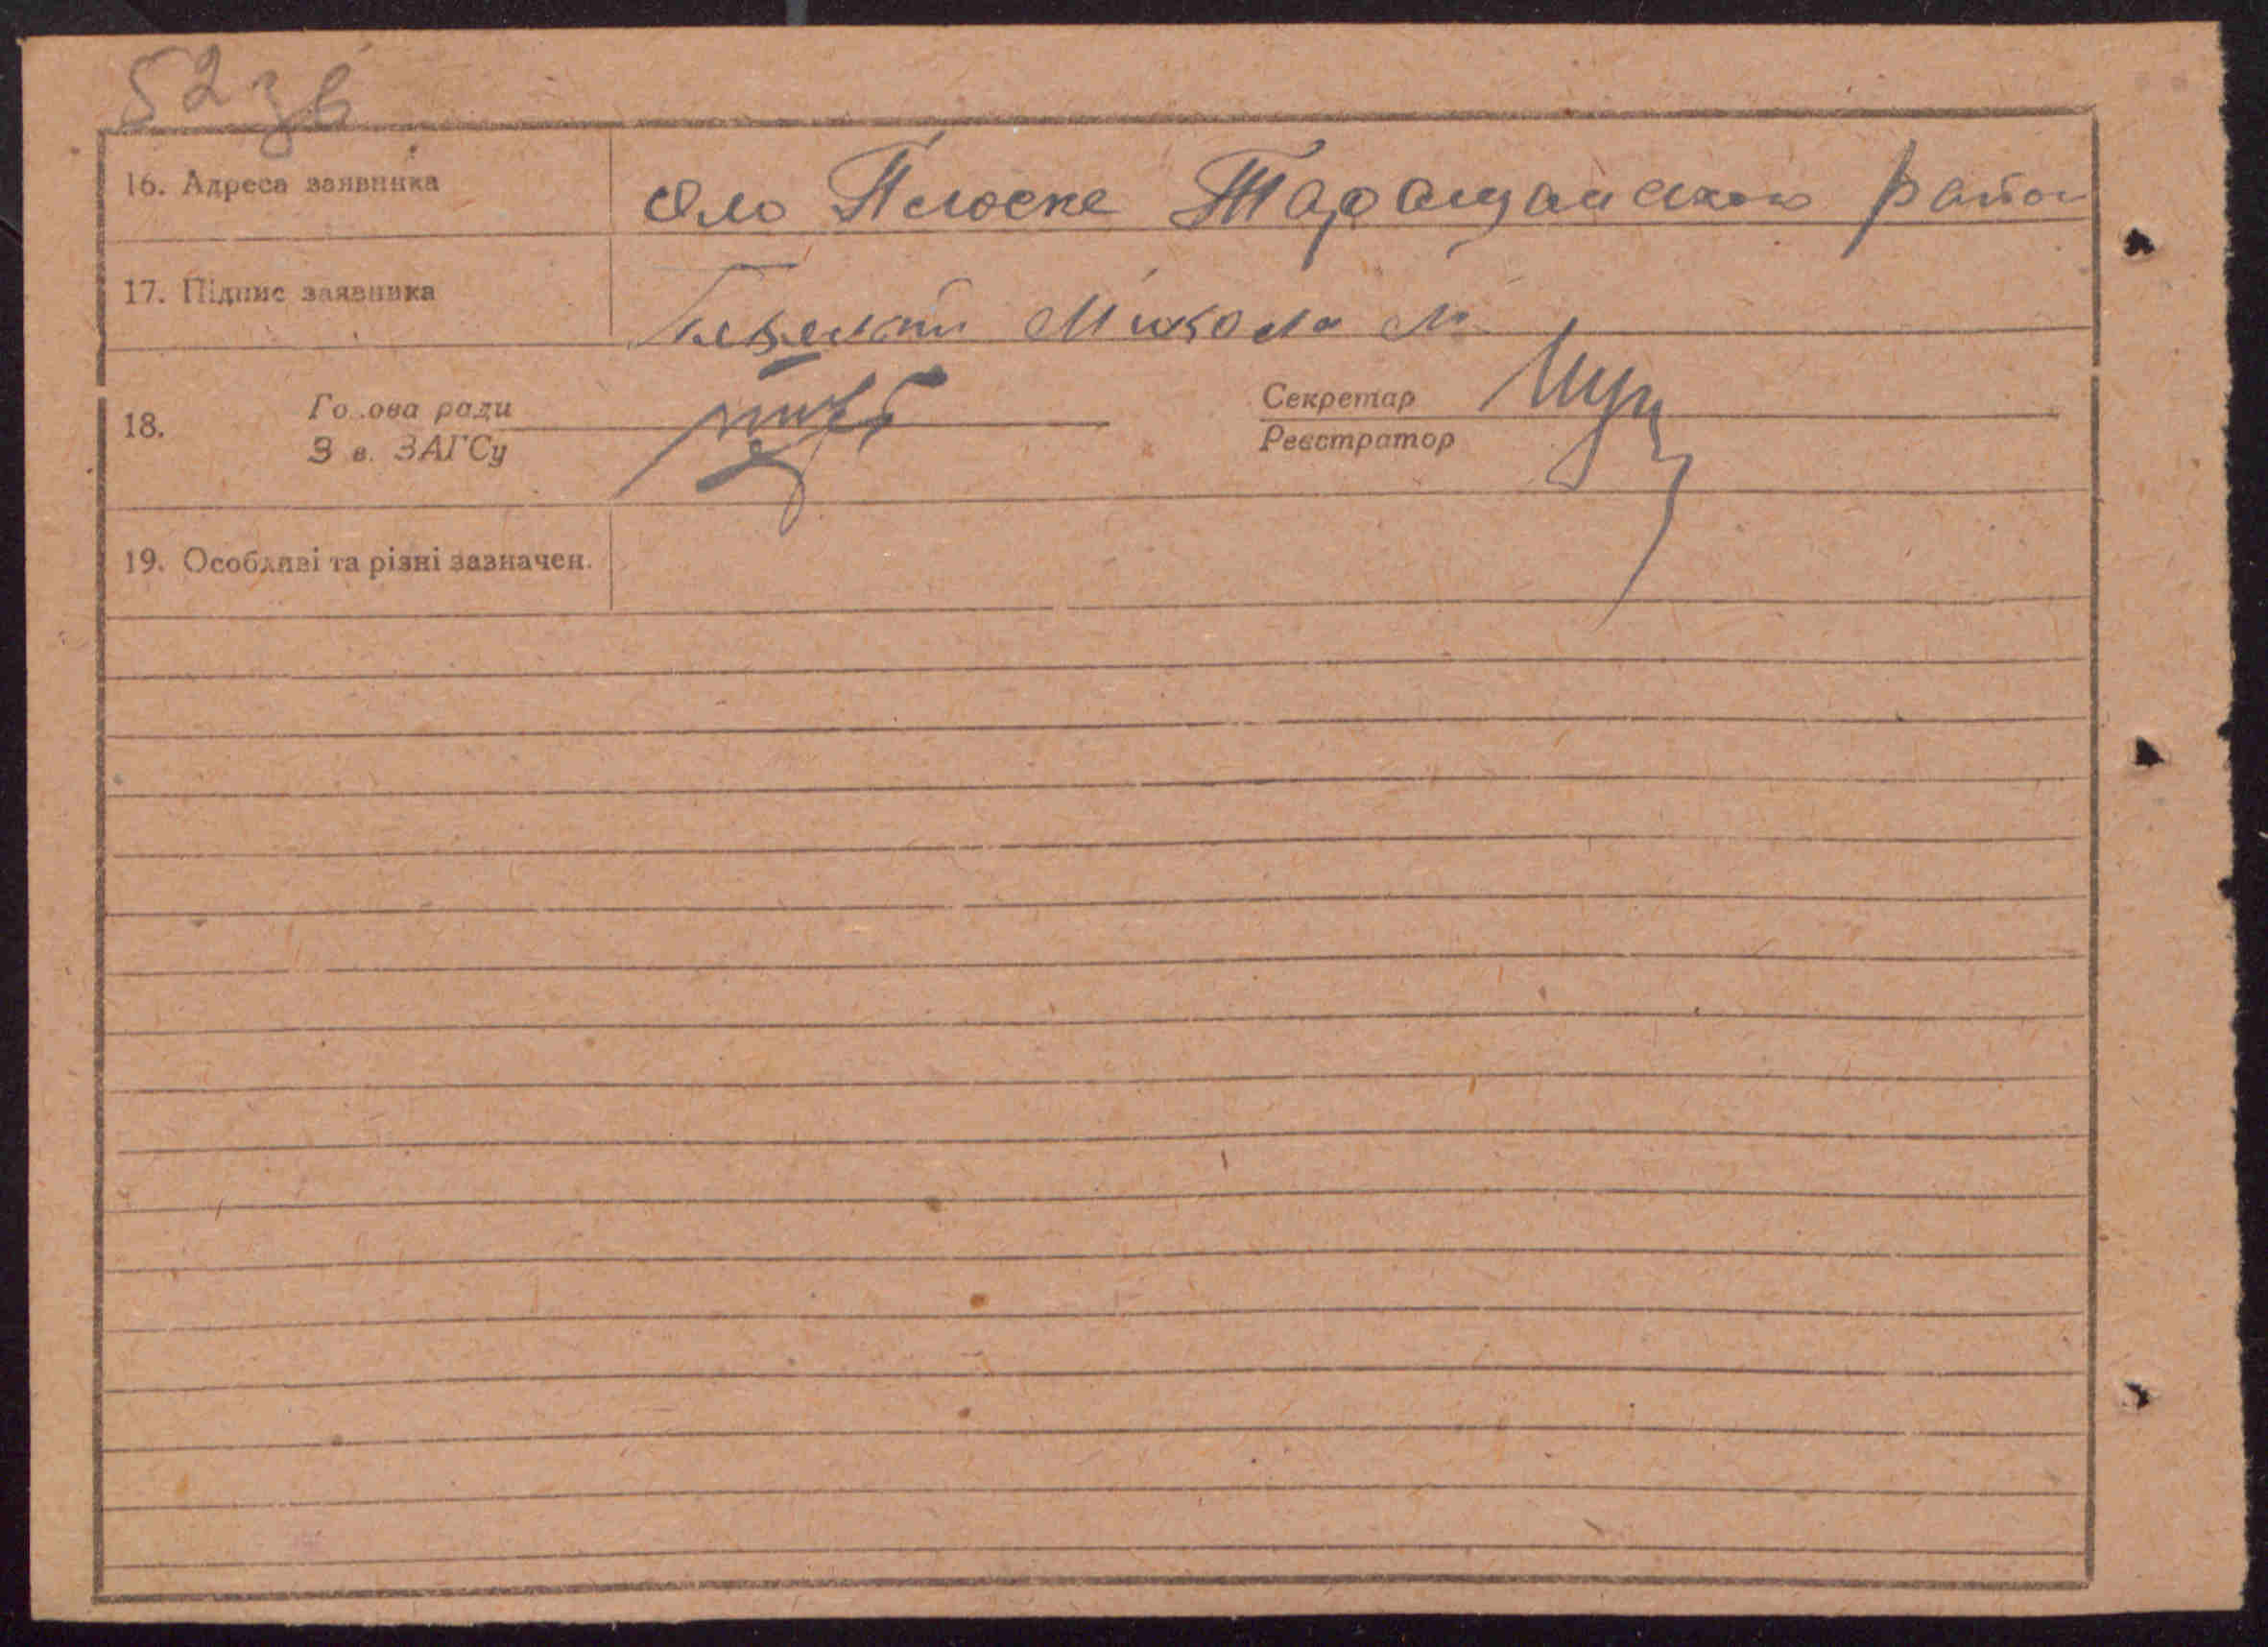 52 зв
16. Адреса заявника
село Плоске Таращанского район
17. Підпис заявника
Микола М.
18. Голова ради
Секретар
Зав. ЗАГСу
Реєстратор
19. Особливі та різні зазначен.